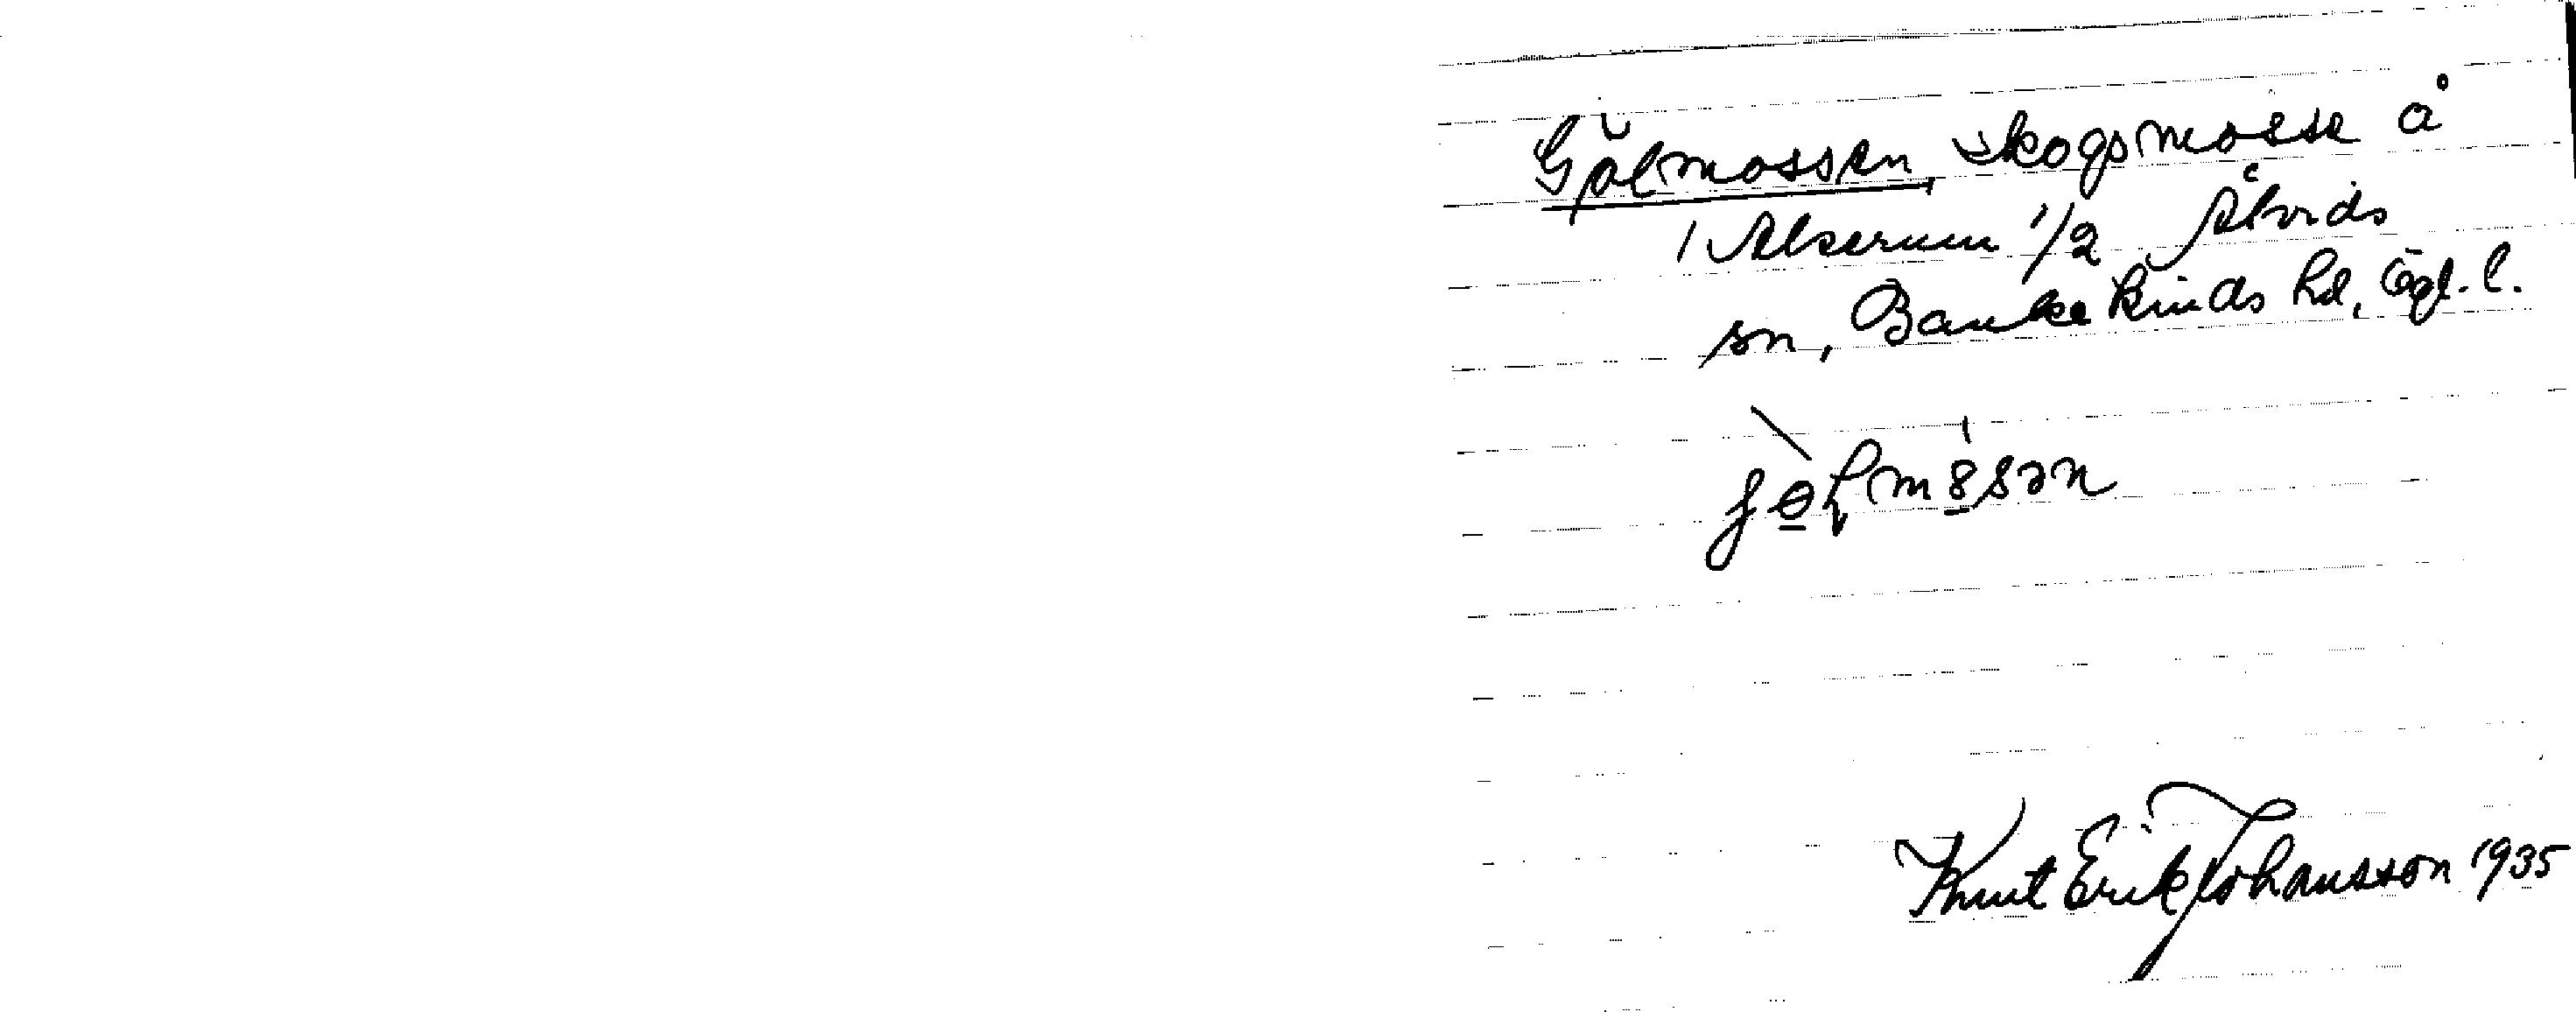 Gölmossen, skogsmosse å
1 Alserum 1/2 Åtvids
sn, Bankekinds hd, Ögl. l.
Knut Erik Johansson 1935